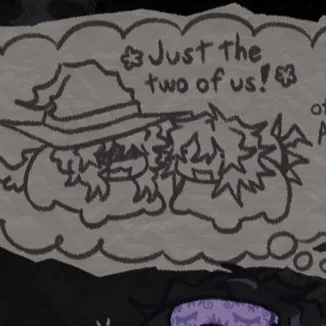 Just the
two of us!